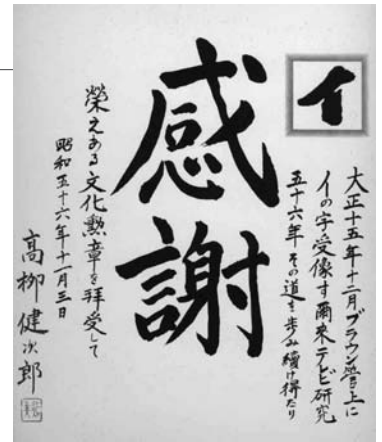 イ
大正十五年十二月ブラウン管上に
イの字受像す爾来テレビ研究
五十六年その道を歩み續け得たり
感謝
榮えある文化勲章を拝受して
昭和五十六年十一月三日
高柳健次郎